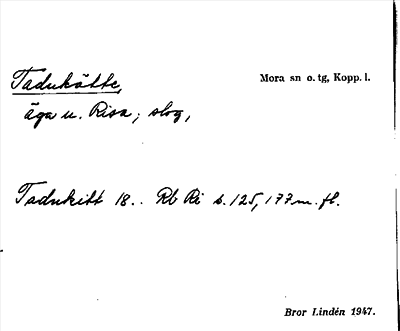 Tadukätte,
Mora sn o. tg, Kopp. l.
äga u. Risa; skog,
Tadukitt 18.. Rb Ri s. 125, 177 m. fl.
Bror Lindén 1947.